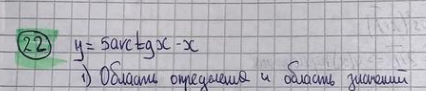 22 y = 5arctgx - x
1) Область определения и область значений